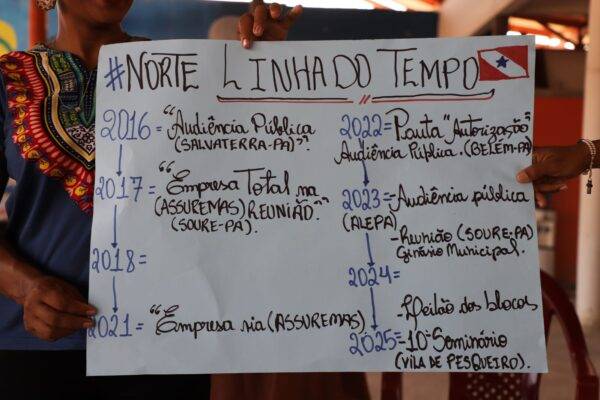 #NORTE LINHA DO TEMPO
2016= "Audiência Pública
(SALVATERRA-PA)".
2017= "Empresa Total na
(ASSUREMAS) REUNIÃO."
(SOURE-PA).
2018=
2021= "Empresa via (ASSUREMAS)
2022= Pauta "Autorização"
Audiência Pública. (BELÉM-PA)
2023= Audiência pública
(ALEPA)
- Reunião (SOURE-PA)
Ginásio Municipal.
2024=
- Leilão dos blocos
2025= -10º Seminário
(VILA DE PESQUEIRO).